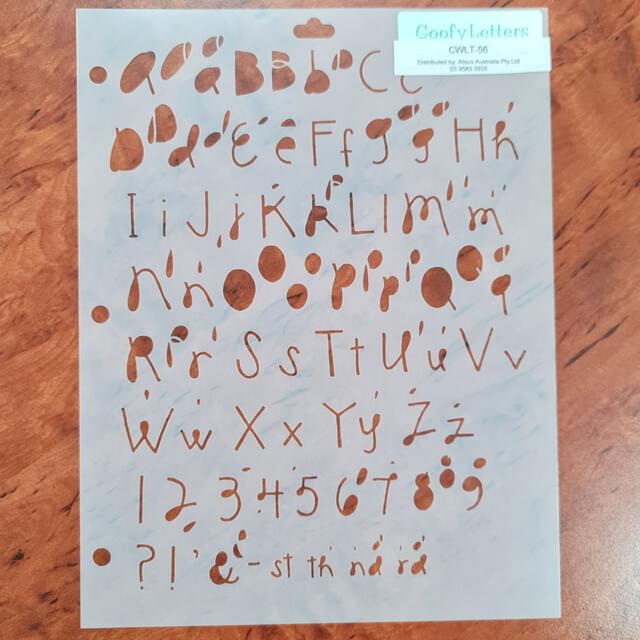 Goofy Letters
CWLT-56
Distributed by: Atsco Australia Pty Ltd
03 9583 0935
A a B b C c
D d E e F f G g H h
I i J j K k L l M m
N n O o P p Q q
R r S s T t U u V v
W w X x Y y Z z
1 2 3 4 5 6 7 8 9
? ! ' & - st th nd rd